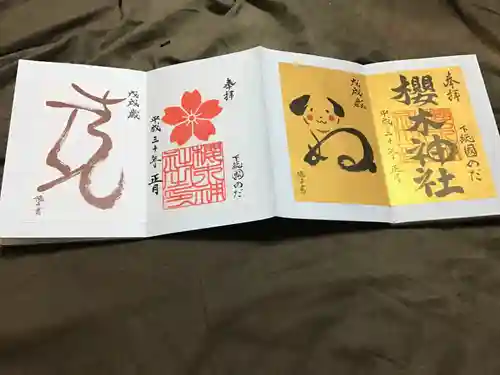 奉拝
下総國のだ
櫻木神社
平成三十年 正月
戊戌歳
ぬ
奉拝
下総國のだ
櫻木神
社之印
平成三十年 正月
戊戌歳